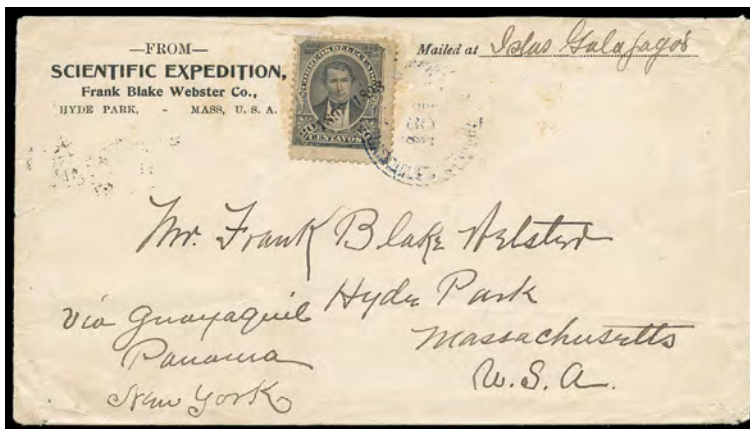 —FROM—
SCIENTIFIC EXPEDITION,
Frank Blake Webster Co.,
HYDE PARK, - MASS, U. S. A.
Mailed at Islas Galapagos
CORREOS DEL ECUADOR
1898
CENTAVOS
Mr. Frank Blake Webster
Hyde Park
Massachusetts
U.S.A.
via Guayaquil
Panama
New York